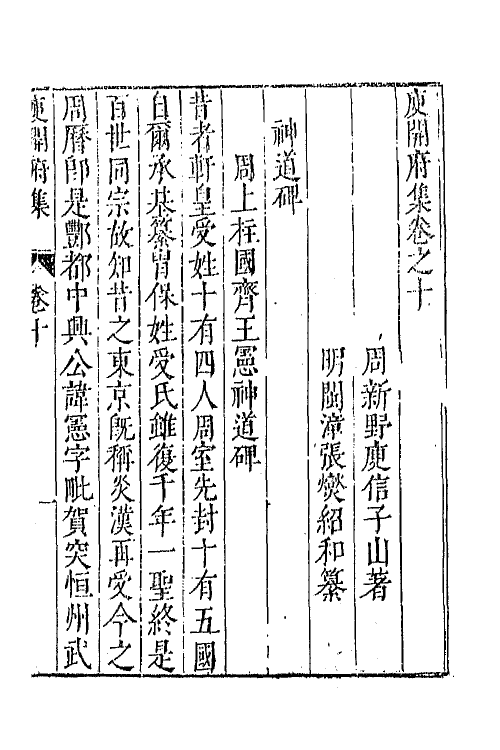 庾開府集卷之十
周新野庾信子山著
明閩漳張燮紹和纂
神道碑
周上柱國齊王憲神道碑
昔者軒皇受姓十有四人周室先封十有五國
自爾承基纂胄保姓受氏雖復千年一聖終是
百世同宗故知昔之東京旣稱炎漢再受今之
周曆郎是酆都中興公諱憲字毗賀突恒州武
庾開府集
卷十
一